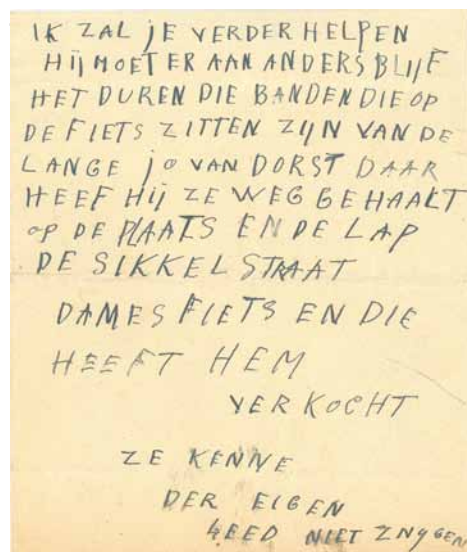 IK ZAL JE VERDER HELPEN
HIJ MOET ER AAN ANDERS BLIJF
HET DUREN DIE BANDEN DIE OP
DE FIETS ZITTEN ZIJN VAN DE
LANGE JO VAN DORST DAAR
HEEF HIJ ZE WEG GEHAALT
OP DE PLAATS EN DE LAP
DE SIKKELSTRAAT
DAMES FIETS EN DIE
HEEFT HEM
VERKOCHT
ZE KENNE
DER EIGEN
NIET